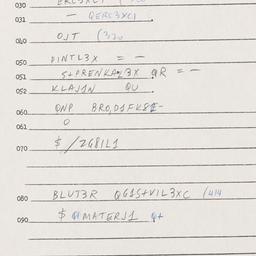 030
031 — QERC3XCI
040 OJT (320
050 PINTL3X = -
051 S+PRENKA23X QR = -
052 KLAJ1N QU
060 ONP BRO,D1FK8E-
061 O
070 $/2G81L1
080 BLUT3R QG1S+VIL3XC (414
090 $ QMATERJ1 Q+